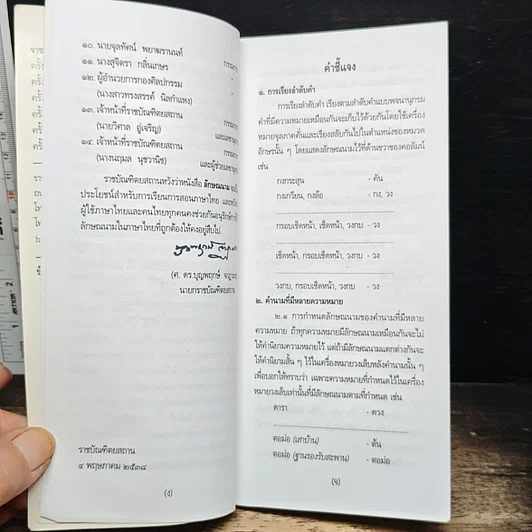 ๑๐. นายจุลทัศน์ พยาฆรานนท์
๑๑. นางสุจิตรา กลิ่นเกษร
๑๒. ผู้อำนวยการกองศิลปกรรม
(นางสาวทรงสรรค์ นิลกำแหง)
๑๓. เจ้าหน้าที่ราชบัณฑิตยสถาน
(นายวิศาล อู่เจริญ)
๑๔. เจ้าหน้าที่ราชบัณฑิตยสถาน
(นางนฤมล นุชวานิช) และผู้ช่วยเลขานุการ
ราชบัณฑิตยสถานหวังว่าหนังสือ ลักษณนาม
ประโยชน์สำหรับการเรียนการสอนภาษาไทย และหวัง
ผู้ใช้ภาษาไทยและคนไทยทุกคนคงช่วยกันอนุรักษ์การใช้
ลักษณนามในภาษาไทยที่ถูกต้องให้คงอยู่สืบไป
(ศ. ดร.บุญพฤกษ์
นายกราชบัณฑิตยสถาน
ราชบัณฑิตยสถาน
๔ พฤษภาคม ๒๕๓๘
(ง)
คำชี้แจง
๑. การเรียงลำดับคำ
การเรียงลำดับคำ เรียงตามลำดับคำแบบพจนานุกรม
คำที่มีความหมายเหมือนกันจะเก็บไว้ด้วยกันโดยใช้เครื่อง
หมายจุลภาคคั่นและเรียงสลับกันไปในตำแหน่งของหมวด
อักษรนั้น ๆ โดยแสดงลักษณนามไว้ที่ด้านขวาของคอลัมน์
เช่น
กงกระสุน - คัน
กงเกวียน, กงล้อ - กง, วง
กรอบเช็ดหน้า, เช็ดหน้า, วงกบ - วง
เช็ดหน้า, กรอบเช็ดหน้า, วงกบ - วง
วงกบ, กรอบเช็ดหน้า, เช็ดหน้า - วง
๒. คำนามที่มีหลายความหมาย
๒.๑ การกำหนดลักษณนามของคำนามที่มีหลาย
ความหมาย ถ้าทุกความหมายมีลักษณนามเหมือนกันจะไม่
ให้คำนิยามความหมายไว้ แต่ถ้ามีลักษณนามแตกต่างกันจะ
ให้คำนิยามสั้น ๆ ไว้ในเครื่องหมายวงเล็บหลังคำนามนั้น ๆ
เพื่อบอกให้ทราบว่า เฉพาะความหมายที่กำหนดไว้ในเครื่อง
หมายวงเล็บเท่านั้นที่มีลักษณนามตามที่กำหนด เช่น
ดารา - ดวง
ตอม่อ (เสาบ้าน) - ต้น
ตอม่อ (ฐานรองรับสะพาน) - ตอม่อ
(จ)